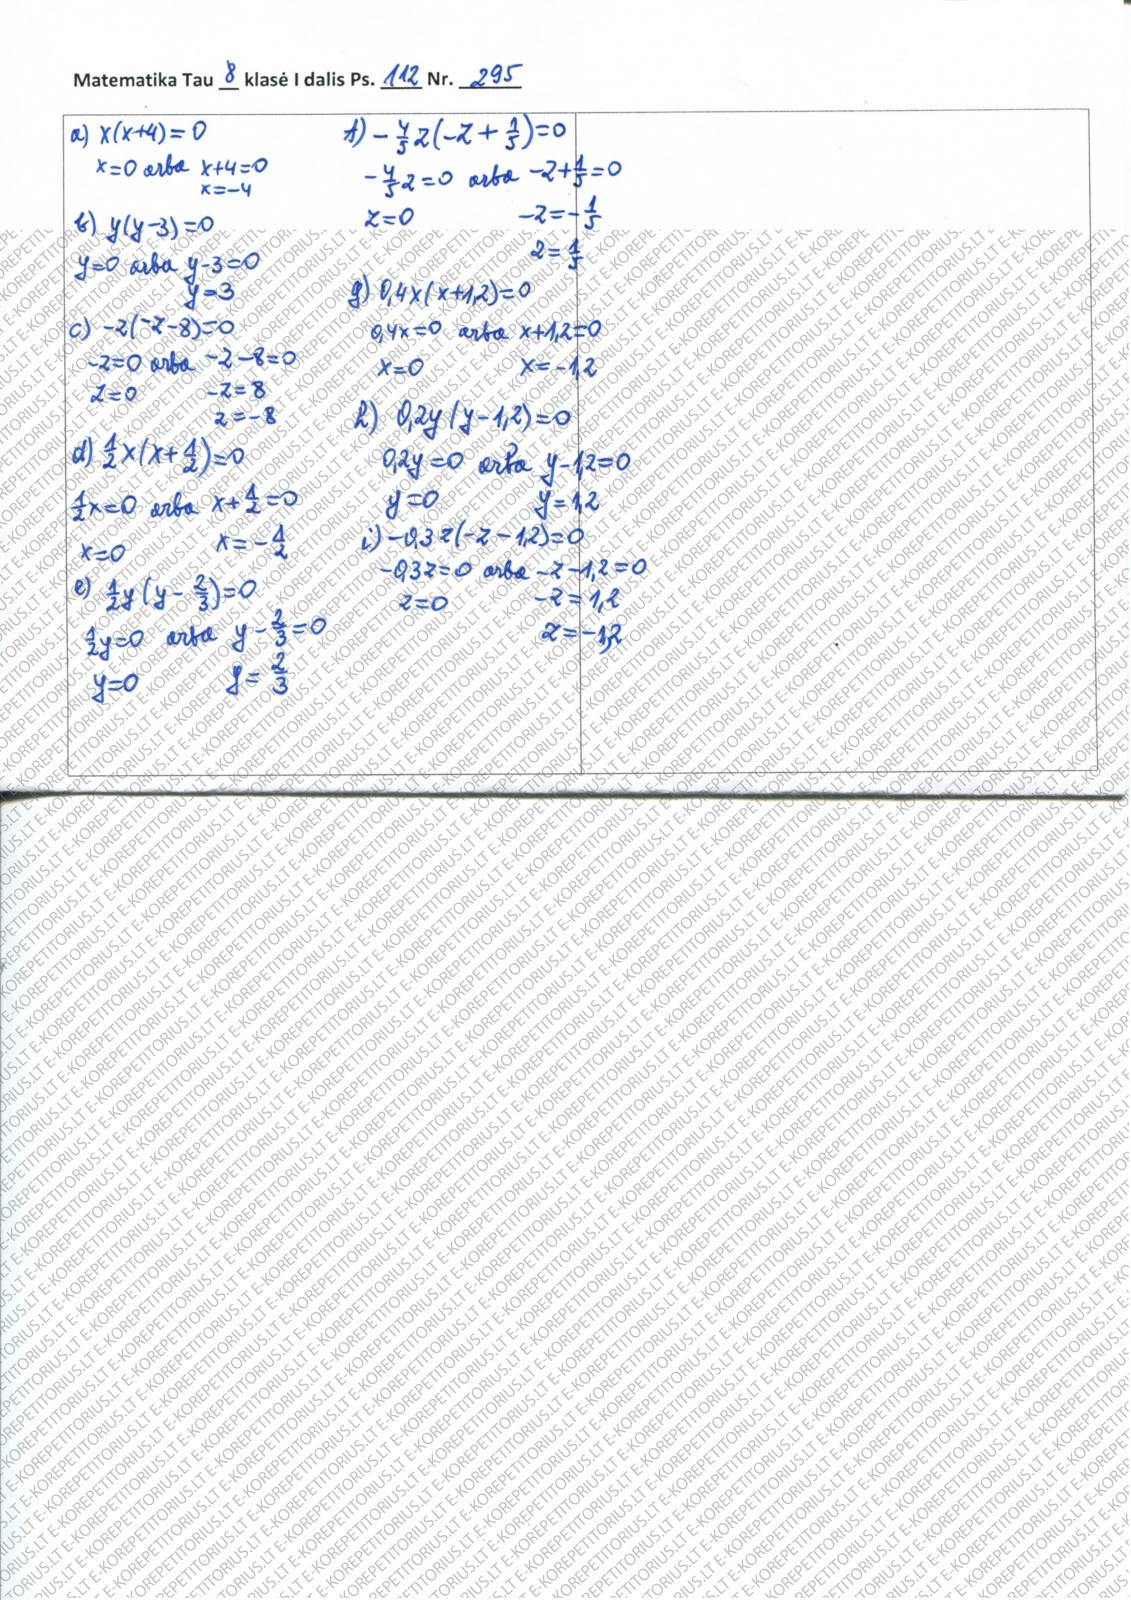 Matematika Tau 8 klasė I dalis Ps. 112 Nr. 295
a) x(x+4)=0
x=0 arba x+4=0
x=-4
b) y(y-3)=0
y=0 arba y-3=0
y=3
c) -z(-z-8)=0
-z=0 arba -z-8=0
z=0 -z=8
z=-8
d) 1/2 x(x+1/2)=0
1/2 x=0 arba x+1/2=0
x=0 x=-1/2
e) 1/2 y(y-2/3)=0
1/2 y=0 arba y-2/3=0
y=0 y=2/3
f) -4/5 z(-z+1/5)=0
-4/5 z=0 arba -z+1/5=0
z=0 -z=-1/5
z=1/5
g) 0,4x(x+1,2)=0
0,4x=0 arba x+1,2=0
x=0 x=-1,2
h) 0,2y(y-1,2)=0
0,2y=0 arba y-1,2=0
y=0 y=1,2
i) -0,3z(-z-1,2)=0
-0,3z=0 arba -z-1,2=0
z=0 -z=1,2
z=-1,2
E-KOREPETITORIUS.LT